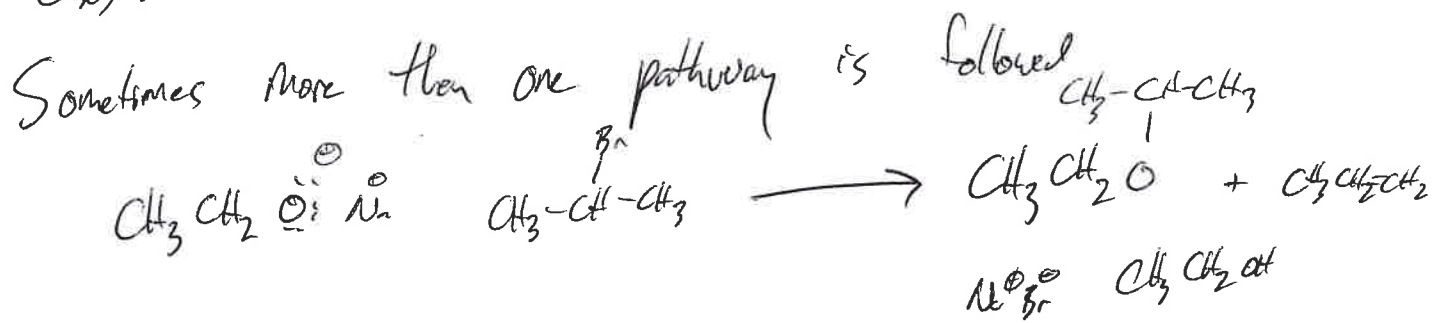 Sometimes more than one pathway is followed
CH3-CH-CH3
Br
⊖ ⊕
CH3 CH2 O: Na CH3-CH-CH3 → CH3 CH2 O + CH3CH=CH2
Na⊕ Br⊖ CH3 CH2 OH